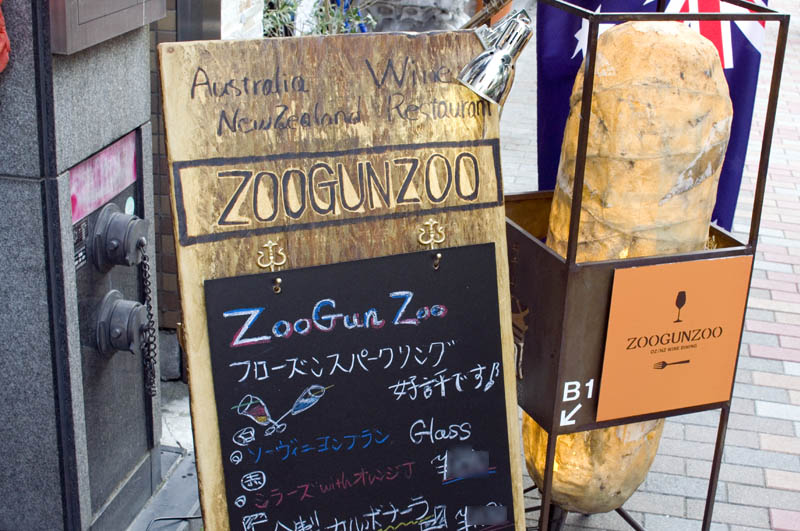 Australia Wine
NewZealand Restaurant
ZOOGUNZOO
ZooGunZoo
フローズンスパークリング
好評です!!
ソーヴィニヨンブラン Glass
赤 シラーズ withオレンジ ¥
カルボナーラ ¥
ZOOGUNZOO
OZ/NZ WINE DINING
B1
↙